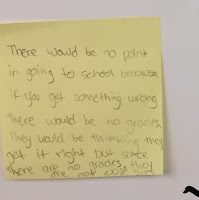 There would be no point
in going to school because
if you get something wrong
There would be no grades.
They would be thinking they
got it right but since
There are no grades they
are not